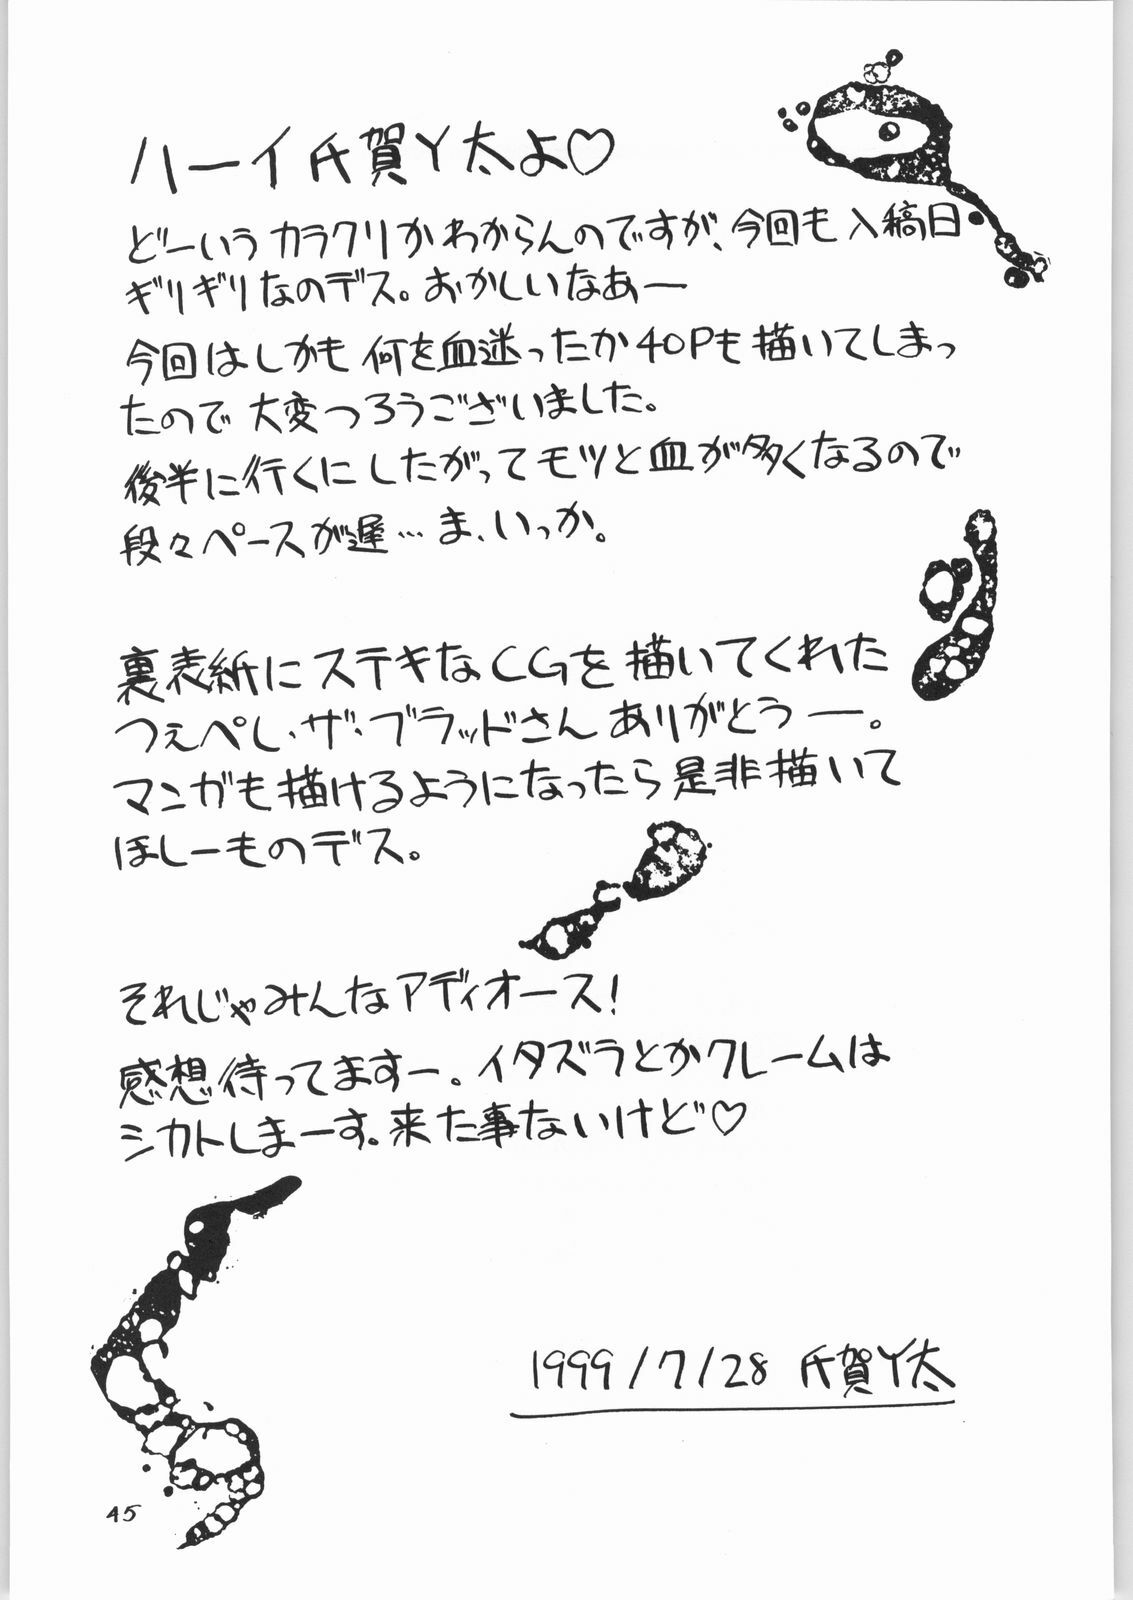 ハーイ氏賀Y太よ♡
どーいうカラクリかわからんのですが、今回も入稿日
ギリギリなのデス。おかしいなあー
今回はしかも何を血迷ったか40Pも描いてしまっ
たので大変つろうございました。
後半に行くにしたがってモツと血が多くなるので
段々ペースが遅…ま、いっか。
裏表紙にステキなCGを描いてくれた
つぇぺし・ザ・ブラッドさんありがとうー。
マンガも描けるようになったら是非描いて
ほしーものデス。
それじゃみんなアディオース!
感想待ってますー。イタズラとかクレームは
シカトしまーす。来た事ないけど♡
1999/7/28 氏賀Y太
45